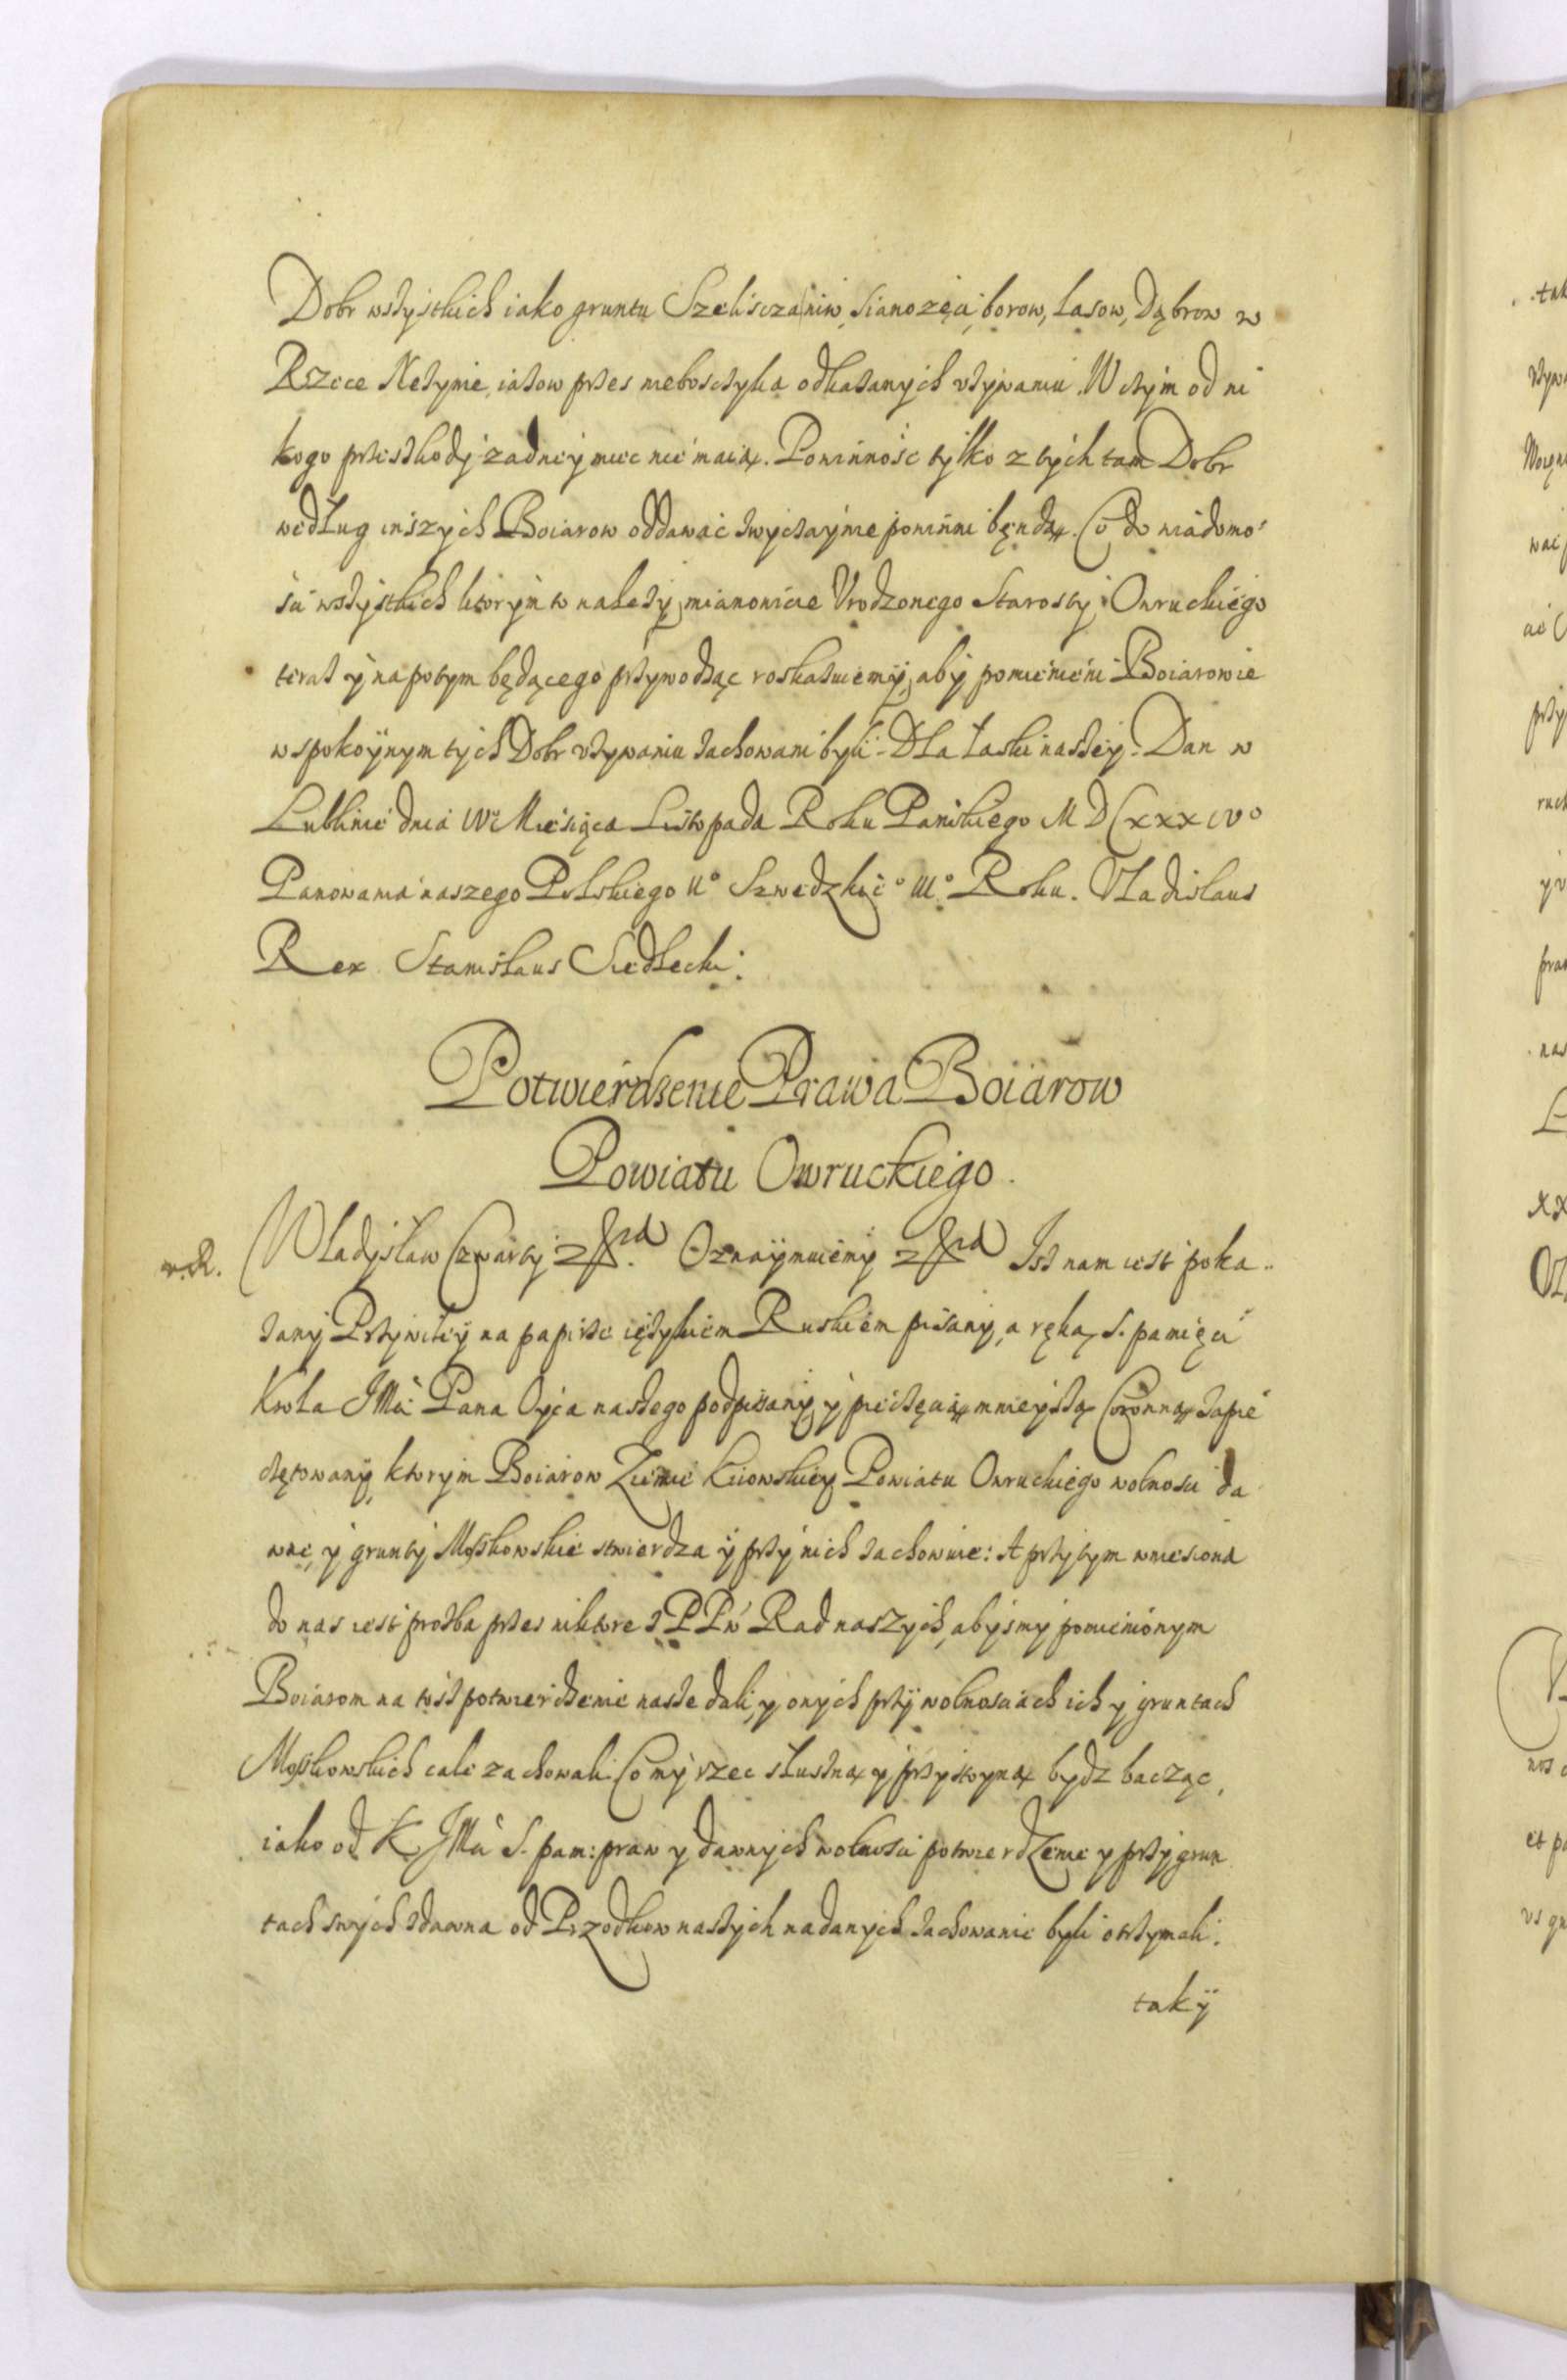 Dobr wszystkich iako gruntu Szelisczaniw, sianozęci, borow, Lasow, Dąbrow w
Rzece Neżynie, iazow przes nieboszczyka odkazanych vżywaniu. W czym od ni
kogo przeszkody zadney miec nie maią. Powinnosc tylko z tych tam Dobr
według inszych Boiarow oddawać zwyczayne powinni będą. Co do wiadomo
sci wszystkich ktorym to należy, mianowicie Vrodzonego Starosty Owruckiego
teraz y napotym będącego przywodząc roskazuiemy, aby pomienieni Boiarowie
w spokoynym tych Dobr vżywaniu zachowani byli. Dla Łaski naszey. Dan w
Lublinie dnia Miesiąca Listopada Roku Panskiego MDCxxxiv°
Panowania naszego Polskiego II° Szwedzkie° III° Roku. Vladislaus
Rex Stanislaus Siedlecki.
Potwierdzenie Prawa Boiarow
Powiatu Owruckiego.
Władysław Czwarty Oznaymuiemy Isz nam iest poka
zany Przywiley na papirze ięzykiem Ruskiem pisany, a ręką S. pamięci
Krola JMci Pana Oyca naszego podpisany y pieczęcią mnieyszą Coronną zapie
czętowany, ktorym Boiarow Ziemie Kiiowskiey Powiatu Owruckiego wolnosci da
wne, y grunty Moszkowskie stwierdza y przy nich zachowuie: A przy tym wniesiona
do nas iest prozba przes niktore z PPw Rad naszych, abysmy pomienionym
Boiarom na tosz potwierdzenie nasze dali, y onych przy wolnosciach ich y gruntach
Moszkowskich cale zachowali. Co my rzec słuszną y przystoyną bydz bacząc,
iako od K JMci S. pam: praw y dawnych wolnosci potwierdzenie y przy grun
tach swych zdawna od Przodkow naszych nadanych zachowanie byli otrzymali.
taky